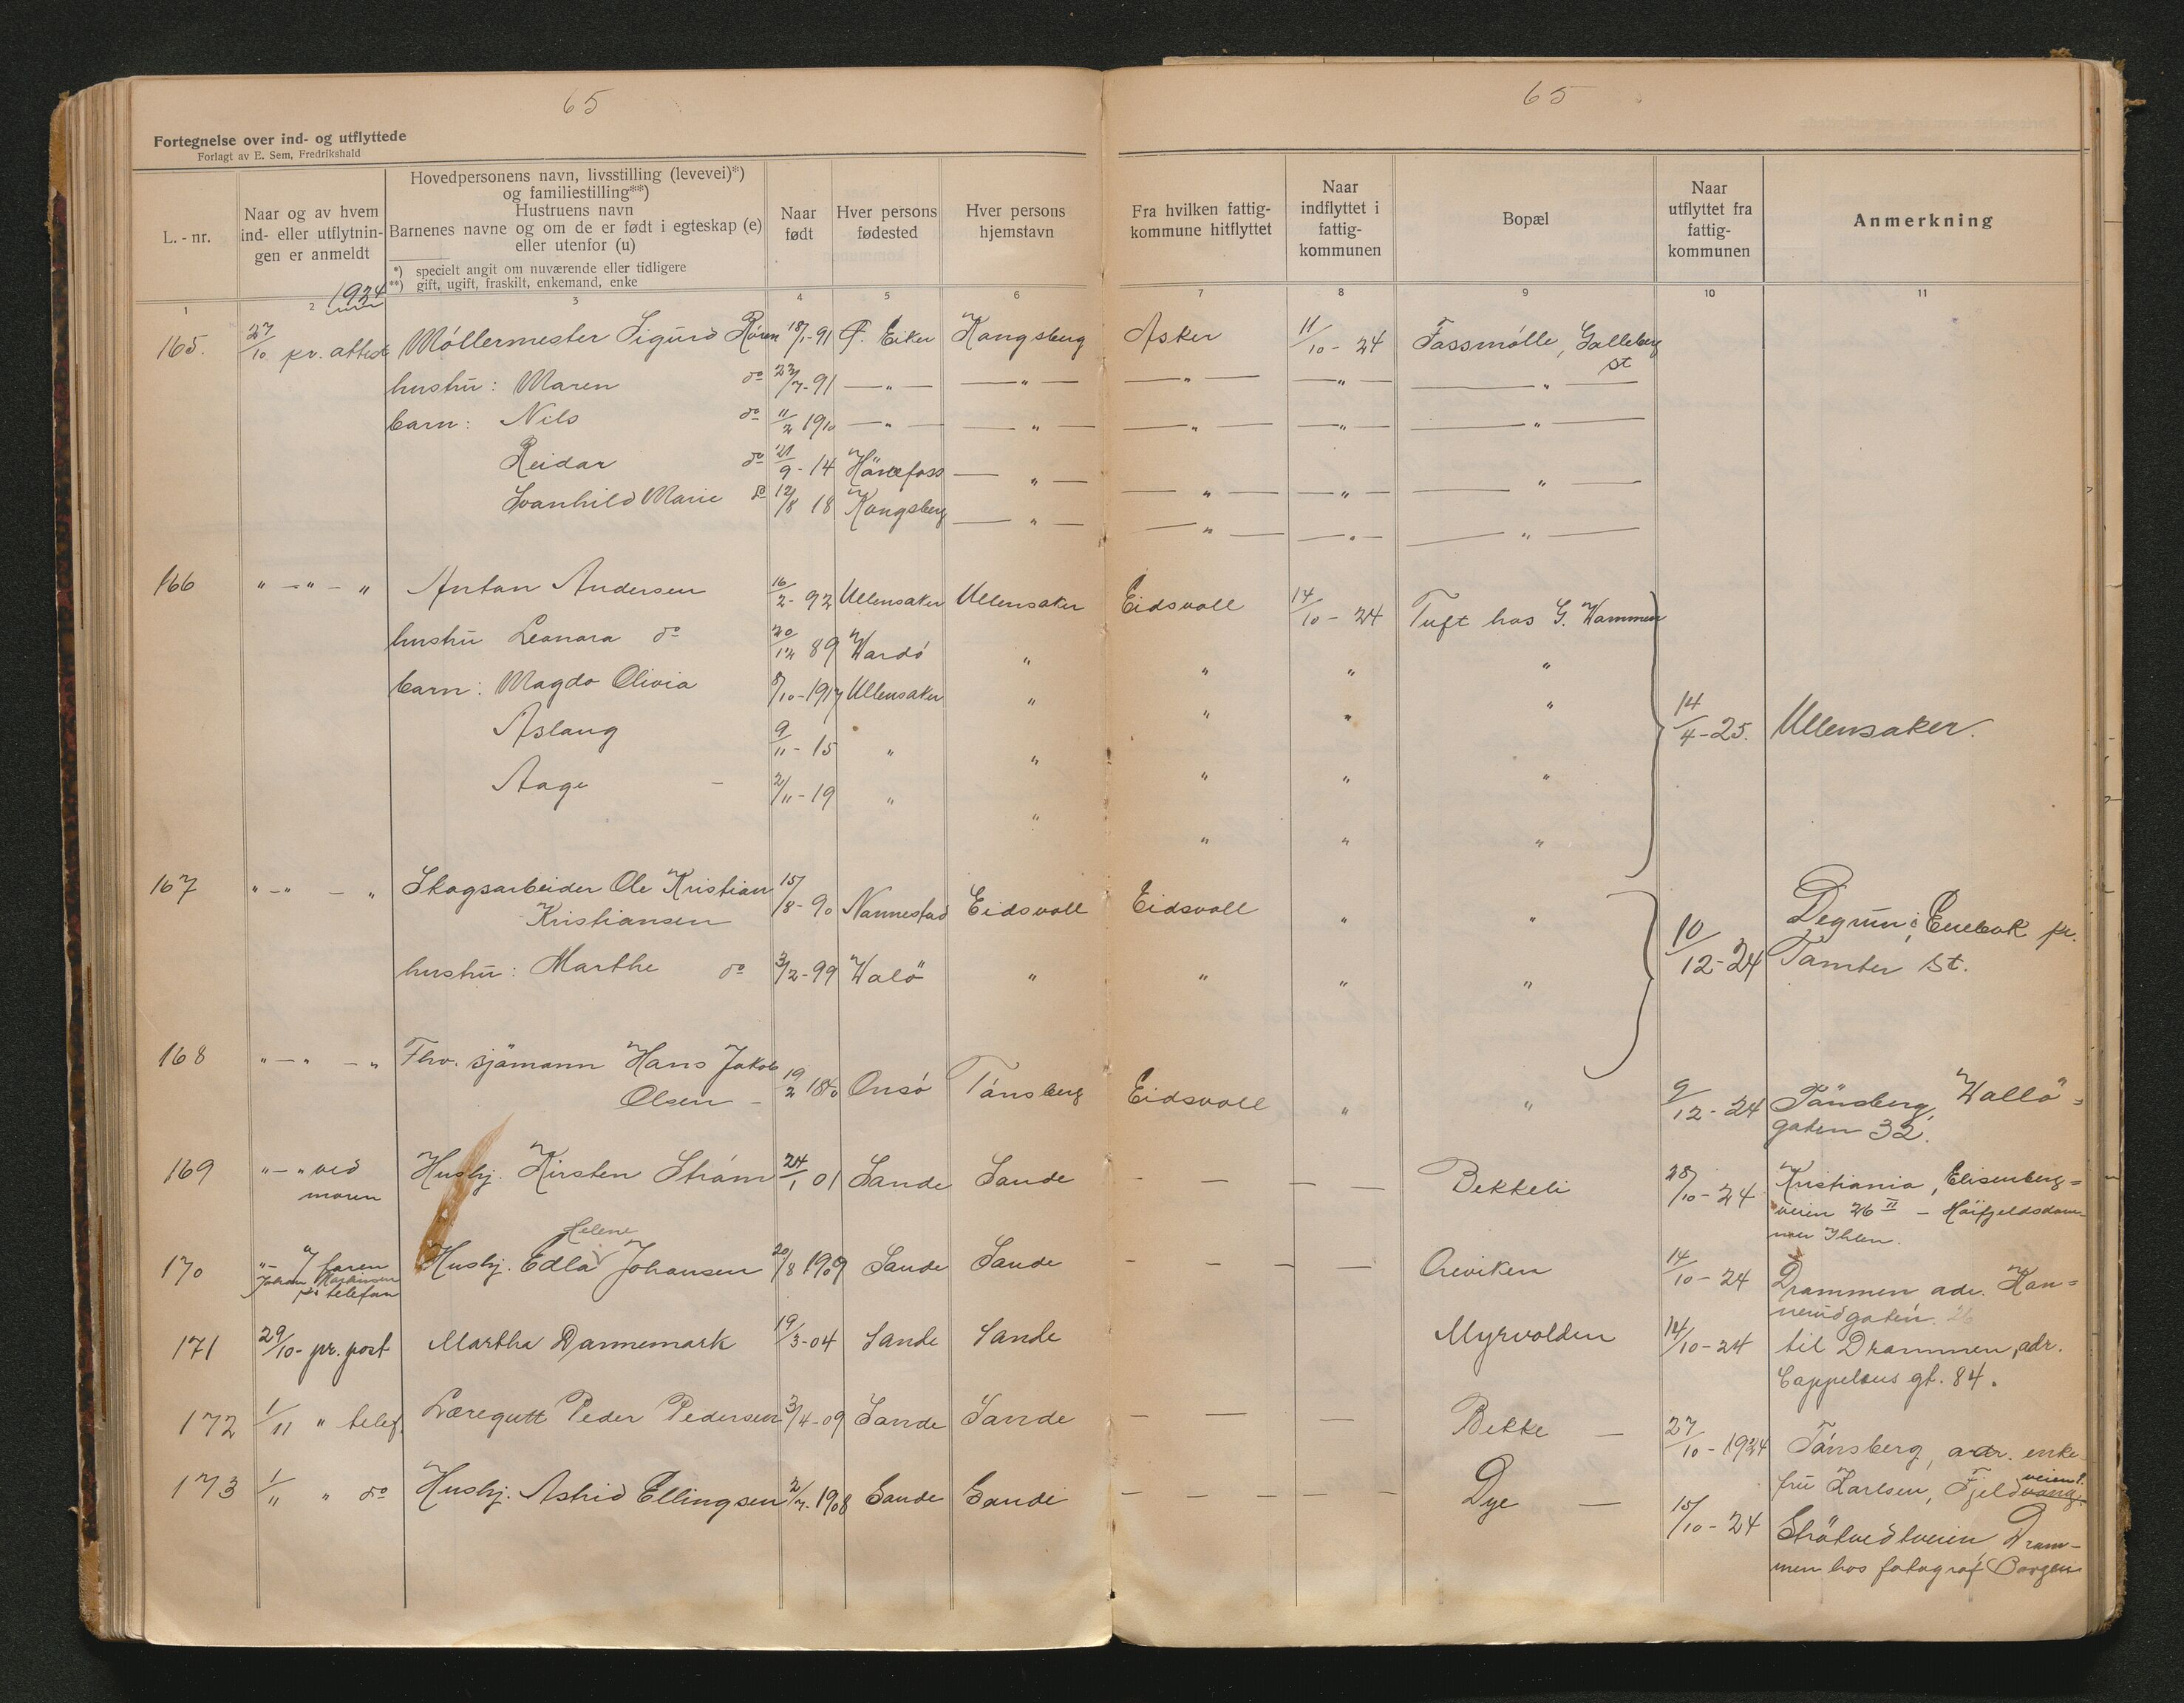 65
65
Fortegnelse over ind- og utflyttede
Forlagt av E. Sem, Fredrikshald
L.-nr.
Naar og av hvem ind- eller utflytnin- gen er anmeldt
Hovedpersonens navn, livsstilling (levevei)*)
og familiestilling**)
Hustruens navn
Barnenes navne og om de er født i egteskap (e)
eller utenfor (u)
*) specielt angit om nuværende eller tidligere
**) gift, ugift, fraskilt, enkemand, enke
Naar født
Hver persons fødested
Hver persons hjemstavn
Fra hvilken fattig- kommune hitflyttet
Naar indflyttet i fattig- kommunen
Bopæl
Naar utflyttet fra fattig- kommunen
Anmerkning
1 2 3 4 5 6 7 8 9 10 11
1924
165. 27/10 pr. attest Møllermester Sigurd Røren 18/1-91 Ø. Eiker Kongsberg Asker 11/10-24 Fossmølle, Galleberg st
hustru: Maren do 23/7-91 —"— —"— —"— —"— —"—
barn: Nils do 11/2 1910 —"— —"— —"— —"— —"—
Reidar do 21/9-14 Hönefoss —"— —"— —"— —"—
Svanhild Marie do 12/8 18 Kongsberg —"— —"— —"— —"—
166 "—"—" Anton Andersen 16/2-92 Ullensaker Ullensaker Eidsvoll 14/10-24 Tuft hos G. Hammer
hustru Leonora do 20/12 89 Wardø " " " "
barn: Magda Olivia 8/10-1917 Ullensaker " " " " 14/4-25. Ullensaker.
Aslaug 9/11-15 " " " " "
Aage - 2/11-19 " " " " "
167 "—"—" Skogsarbeider Ole Kristian Kristiansen 15/8-90 Nannestad Eidsvoll Eidsvoll " " 10/12-24 Degrum i Enebak pr. Tomter St.
hustru: Marthe do 3/2-99 Walö " " " "
168 "—"—" Fhv. sjømann Hans Jakob
Olsen - 19/2 1840 Onsø Tønsberg Eidsvoll " " 9/12-24 Tönsberg, Wallö=
gaten 32.
169 "—" ved moren Husbj. Kirsten Strøm 24/1 01 Sande Sande - — — — Bekkeli 28/10-24 Kristiania, Elisenberg=
veien 26 II - Höifjeldsdom-
mer Ihlen.
Helene
170 "- af faren Johan på telefon Husbj. Edla Johansen 20/8 1909 Sande Sande - - - — Oreviken 14/10-24 Drammen adr. Kon=
nerudgaten. 26
171 29/10- pr. post Martha Dannemark 19/3-04 Sande Sande Myrvolden 14/10-24 til Drammen, adr.
Cappelens gt. 84.
172 1/11 " telef. Læregutt Peder Pedersen 3/4-09 Sande Sande — — — — Bekke — 27/10-1924 Tønsberg, adr. enke-
fru Karlsen, Fjeldvang veien?.
173 1/11 " do Husbj. Astrid Ellingsen 2/7-1908 Sande Sande — — — — — Dye — 15/10-24 Strötvedtveien, Dram-
men hos fotograf Borgen